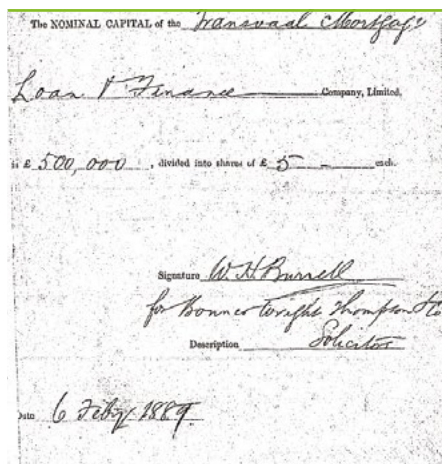 The NOMINAL CAPITAL of the Transvaal Mortgage
Loan & Finance Company, Limited,
is £ 500,000, divided into shares of £ 5 - each.
Signature W. H. Burrell
for Bonner Wright Thompson & Co
Description Solicitor
Date 6 Feby 1889.